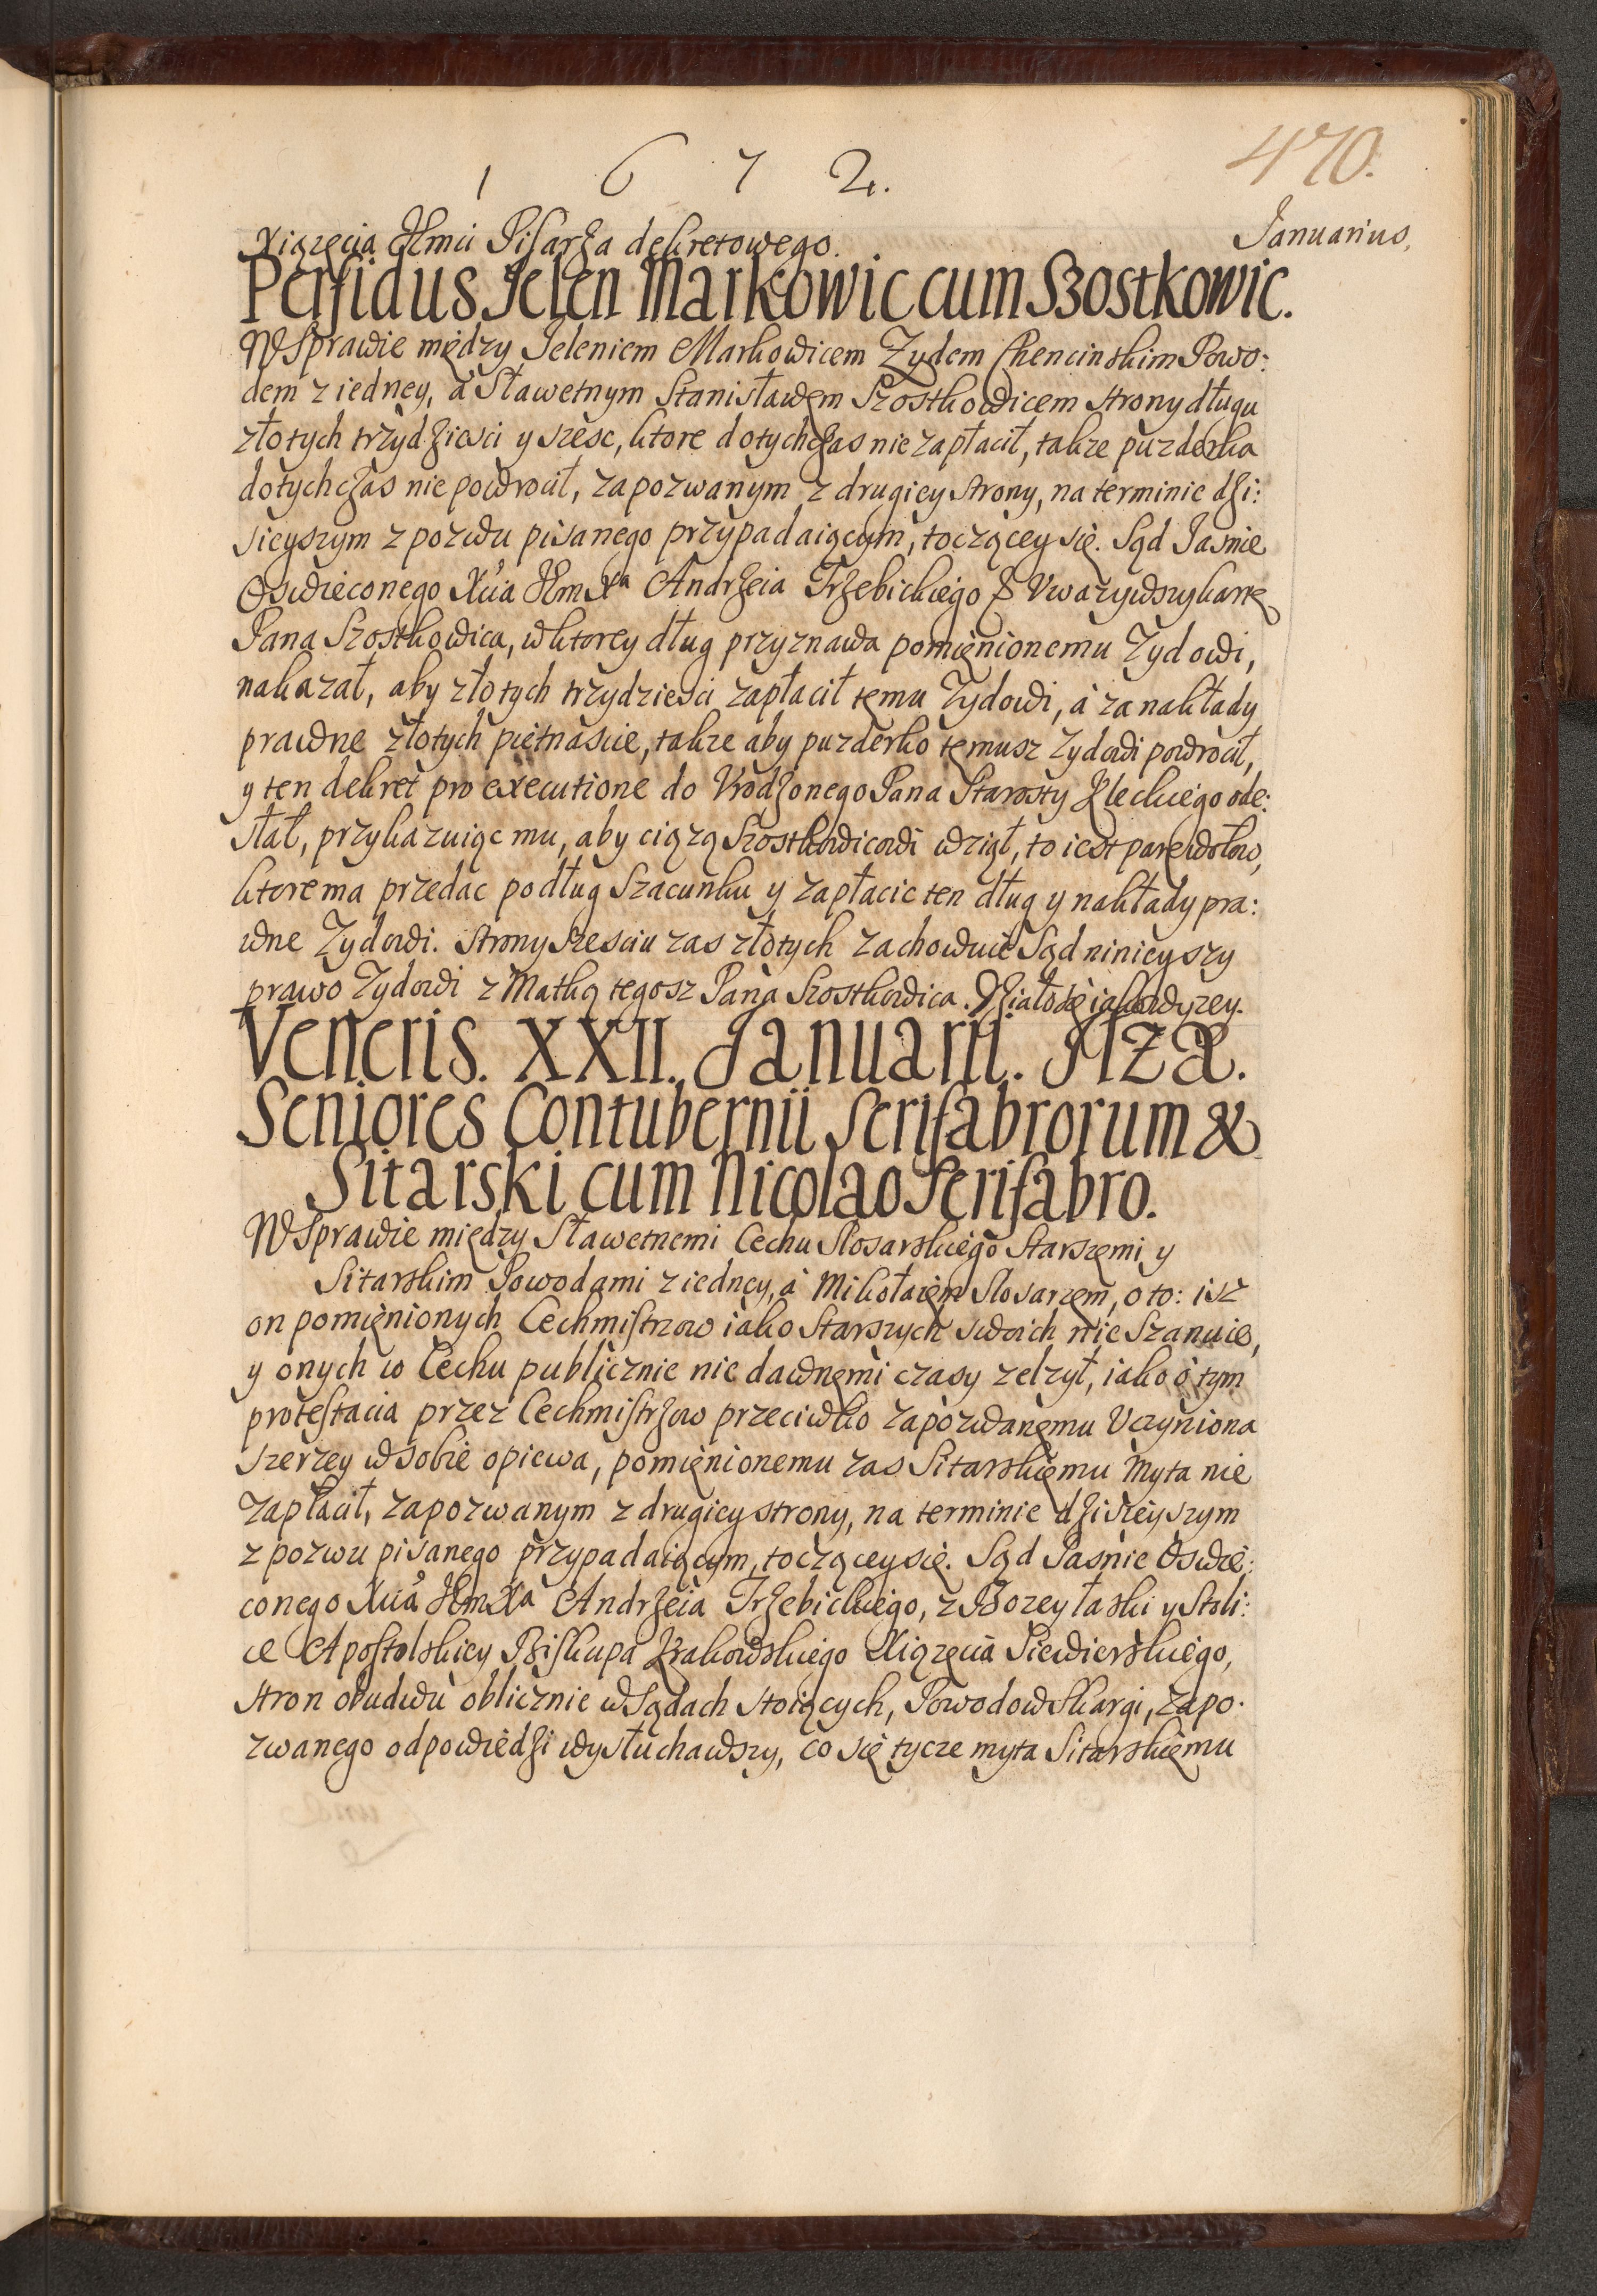 1 6 7 2.
470.
Januarius,
Xiązęcia JEmci Pisarza dekretowego.
Perfidus Jelen Markowic cum Szostkowic.
W Sprawie między Jeleniem Markowicem Zydem Chencinskim Powo:
dem z iedney, á Sławetnym Stanisławem Szostkowicem strony długu
złotych trzydziesci y szesc, ktore dotychczas nie zapłacił, takze puzderka
dotychczas nie powrocił, zapozwanym z drugiey strony, na terminie dzi:
sieyszym z pozwu pisanego przypadaiącym, toczącey się. Sąd Jasnie
Oswieconego Xcia JEmXa Andrzeia Trzebickiego Uwazywszy kartę
Pana Szostkowica, w ktorey dług przyznawa pomięnionemu Zydowi,
nakazał, aby złotych trzydziesci zapłacił temu Zydowi, á za nakłady
prawne złotych piętnascie, takze aby puzderko temusz Zydowi powrocił,
y ten dekret pro executione do Urodzonego Pana Starosty Kleckiego ode:
słał, przykazuiąc mu, aby ciązą Szostkowicowi wziął, to iest parę wołow,
ktore ma przedac podług Szacunku y zapłacic ten dług y nakłady pra:
wne Zydowi. Strony Szesciu zas złotych zachowuie Sąd ninieyszy
prawo Zydowi z Matką tegosz Pana Szostkowica. Działo się iako wyzey.
Veneris. XXII. Januarii. 1672.
Seniores Contubernii Serifabrorum &
Sitarski cum Nicolao Serifabro.
W Sprawie między Sławetnemi Cechu Slosarskiego Starszemi y
Sitarskim Powodami z iedney, á Mikołaiem Slosarzem, o to: isz
on pomięnionych Cechmistrzow iako Starszych swoich nie Szanuie,
y onych w Cechu publicznie nie dawnemi czasy zelzył, iako o tym
protestacia przez Cechmistrzow przeciwko zapozwanemu Uczyniona
szerzey w sobie opiewa, pomięnionemu zas Sitarskiemu Myta nie
zapłacił, zapozwanym z drugiey strony, na terminie dzisieyszym
z pozwu pisanego przypadaiącym, toczącey się. Sąd Jasnie Oswie:
conego Xcia JEmXa Andrzeia Trzebickiego, z Bozey łaski y Stoli:
ce Apostolskiey Biskupa Krakowskiego Xiązęcia Siewierskiego,
stron obudwu oblicznie w Sądach stoiących, Powodow Skargi, zapo:
zwanego odpowiedzi wysłuchawszy, co się tycze myta Sitarskiemu